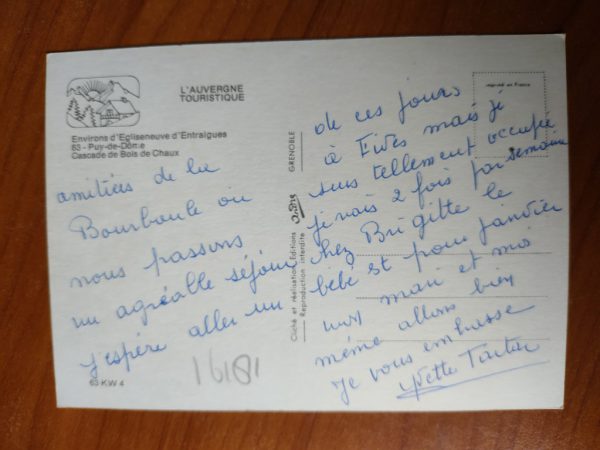 L'AUVERGNE
TOURISTIQUE
Environs d'Egliseneuve d'Entraigues
63 - Puy-de-Dôme
Cascade de Bois de Chaux
amitiées de la
Bourboule où
nous passons
un agréable séjour
j'espère aller un
16181
63 KW 4
GRENOBLE
Cliché et réalisation Editions
Reproduction interdite
Imprimé en France
de ces jours
à Fives mais je
suis tellement occupée
je vais 2 fois par semaine
chez Brigitte le
bébé est pour janvier
mon mari et moi
même allons bien
Je vous embrasse